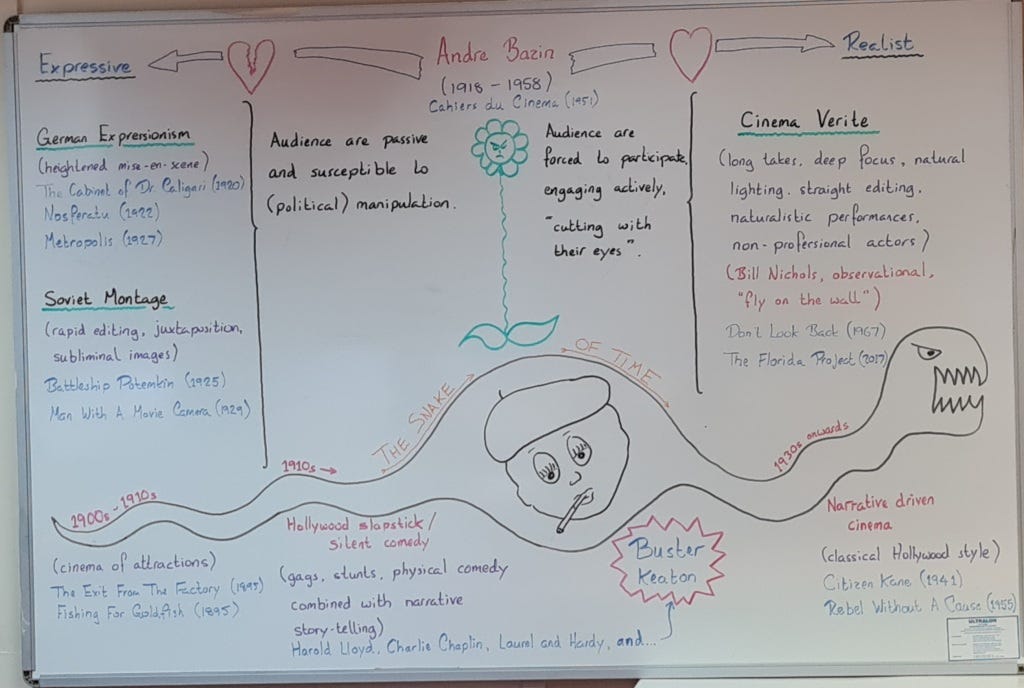 Expressive
Andre Bazin
(1918 - 1958)
Cahiers du Cinema (1951)
Realist
German Expressionism
(heightened mise-en-scene)
The Cabinet of Dr. Caligari (1920)
Nosferatu (1922)
Metropolis (1927)
Soviet Montage
(rapid editing, juxtaposition,
subliminal images)
Battleship Potemkin (1925)
Man With A Movie Camera (1929)
Audience are passive
and susceptible to
(political) manipulation.
Audience are
forced to participate,
engaging actively,
"cutting with
their eyes".
Cinema Verite
(long takes, deep focus, natural
lighting, straight editing,
naturalistic performances,
non-professional actors)
(Bill Nichols, observational,
"fly on the wall")
Don't Look Back (1967)
The Florida Project (2017)
THE SNAKE OF TIME
1900s-1910s
1910s
1930s onwards
(cinema of attractions)
The Exit From The Factory (1895)
Fishing For Goldfish (1895)
Hollywood slapstick/
silent comedy
(gags, stunts, physical comedy
combined with narrative
story-telling)
Harold Lloyd, Charlie Chaplin, Laurel and Hardy, and...
Buster
Keaton
Narrative driven
cinema
(classical Hollywood style)
Citizen Kane (1941)
Rebel Without A Cause (1955)
ULTRALON